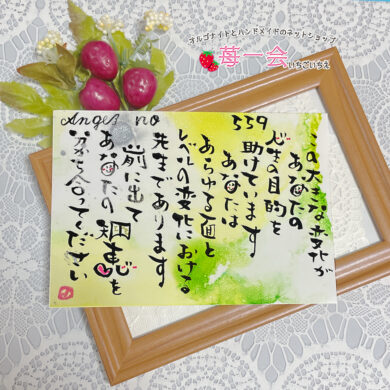 オルゴナイトとハンドメイドのネットショップ
苺一会
いちごいちえ
Angel no 559
この大きな変化が
あなたの
人生の目的を
助けています
あなたは
あらゆる面と
レベルの変化における
先生であります
前に出て
あなたの知恵を
分かち合ってください